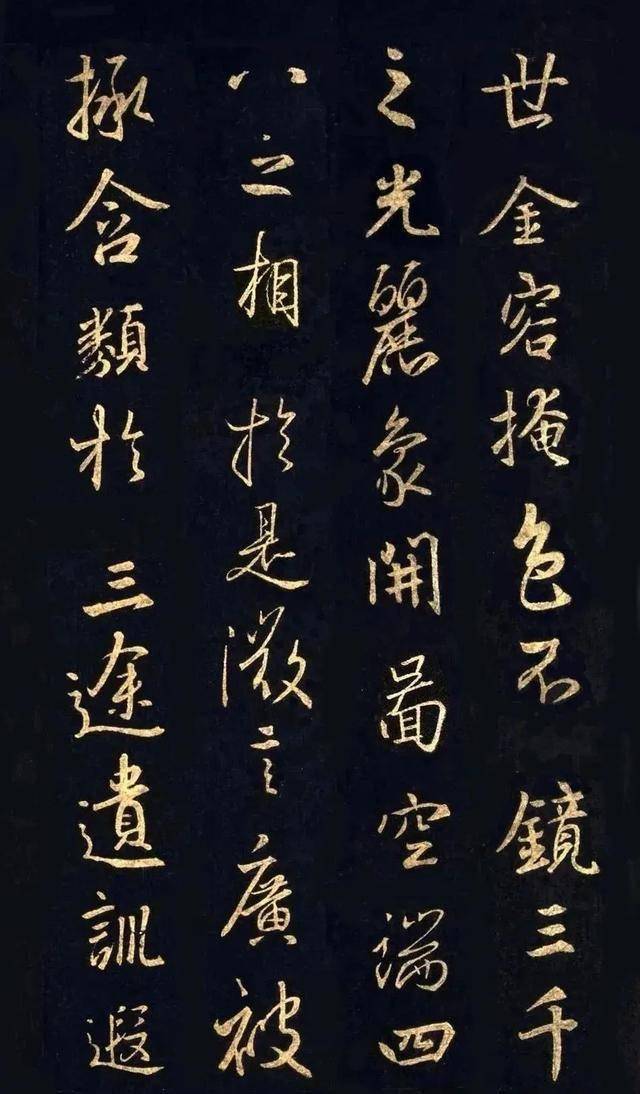 世金容掩色不鏡三千
之光麗象開啚空端四
八之相於是微言廣被
拯含類於三途遺訓遐